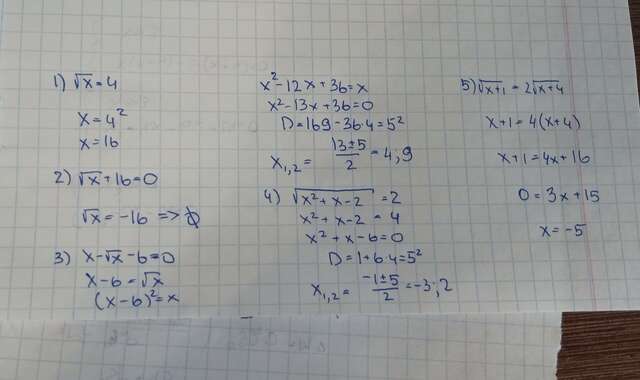 1) √x = 4
x = 4²
x = 16
2) √x + 16 = 0
√x = -16 => ∅
3) x - √x - 6 = 0
x - 6 = √x
(x - 6)² = x
x² - 12x + 36 = x
x² - 13x + 36 = 0
D = 169 - 36·4 = 5²
x₁,₂ = (13 ± 5)/2 = 4; 9
4) √(x² + x - 2) = 2
x² + x - 2 = 4
x² + x - 6 = 0
D = 1 + 6·4 = 5²
x₁,₂ = (-1 ± 5)/2 = -3; 2
5) √(x+1) = 2√(x+4)
x + 1 = 4(x + 4)
x + 1 = 4x + 16
0 = 3x + 15
x = -5